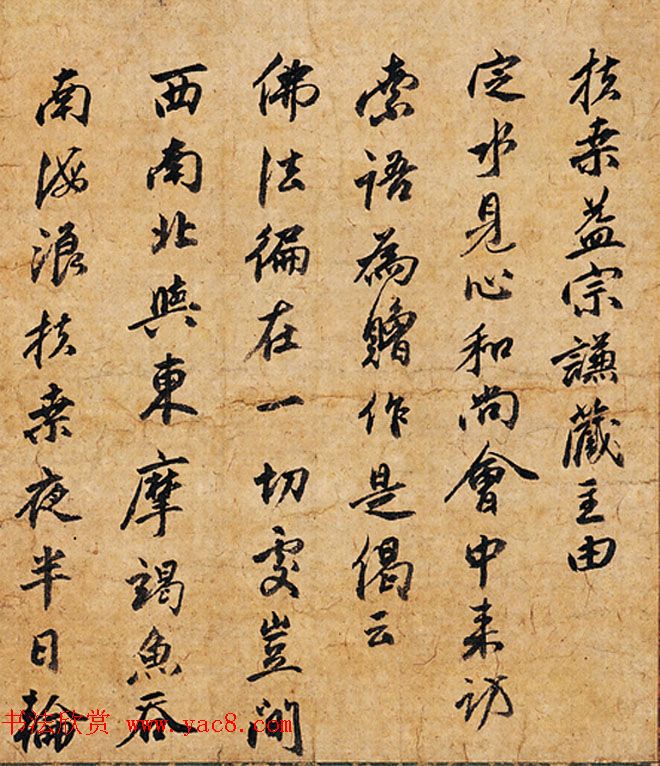 扶桑益宗謙藏主由
定水見心和尚會中来訪
索語為贈作是偈云
佛法徧在一切處豈間
西南北與東摩竭魚吞
南海浪扶桑夜半日輪
书法欣赏 www.yac8.com